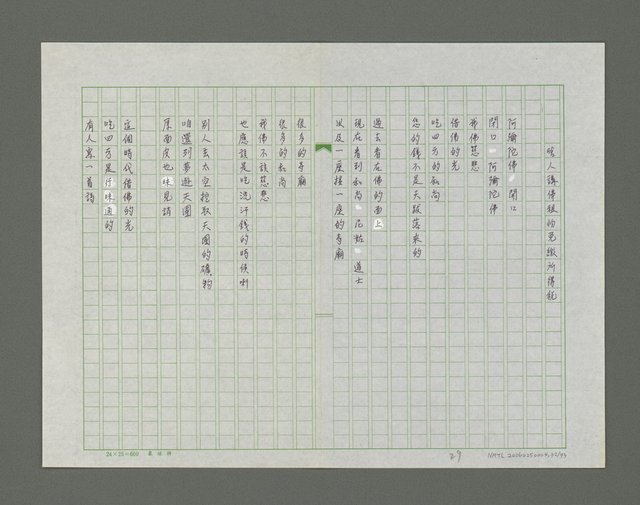 人講佛祖的免繳所得稅
阿彌陀佛 閉口
開口 阿彌陀佛
我佛慈悲
借佛的光
吃四方的和尚
您的錢不是天頂落來的
過去看在佛的面上
現在看到和尚 尼姑 道士
以及一座接一座的寺廟
很多的寺廟
很多的和尚
我佛不該慈悲
也應該是吃流汗錢的時候啊
別人去太空挖取天國的礦物
咱還到夢遊天國
厚面皮也
這個時代借佛的光
吃四方是行味道的
有人寫一首詩
24×25=600
29
NMTL